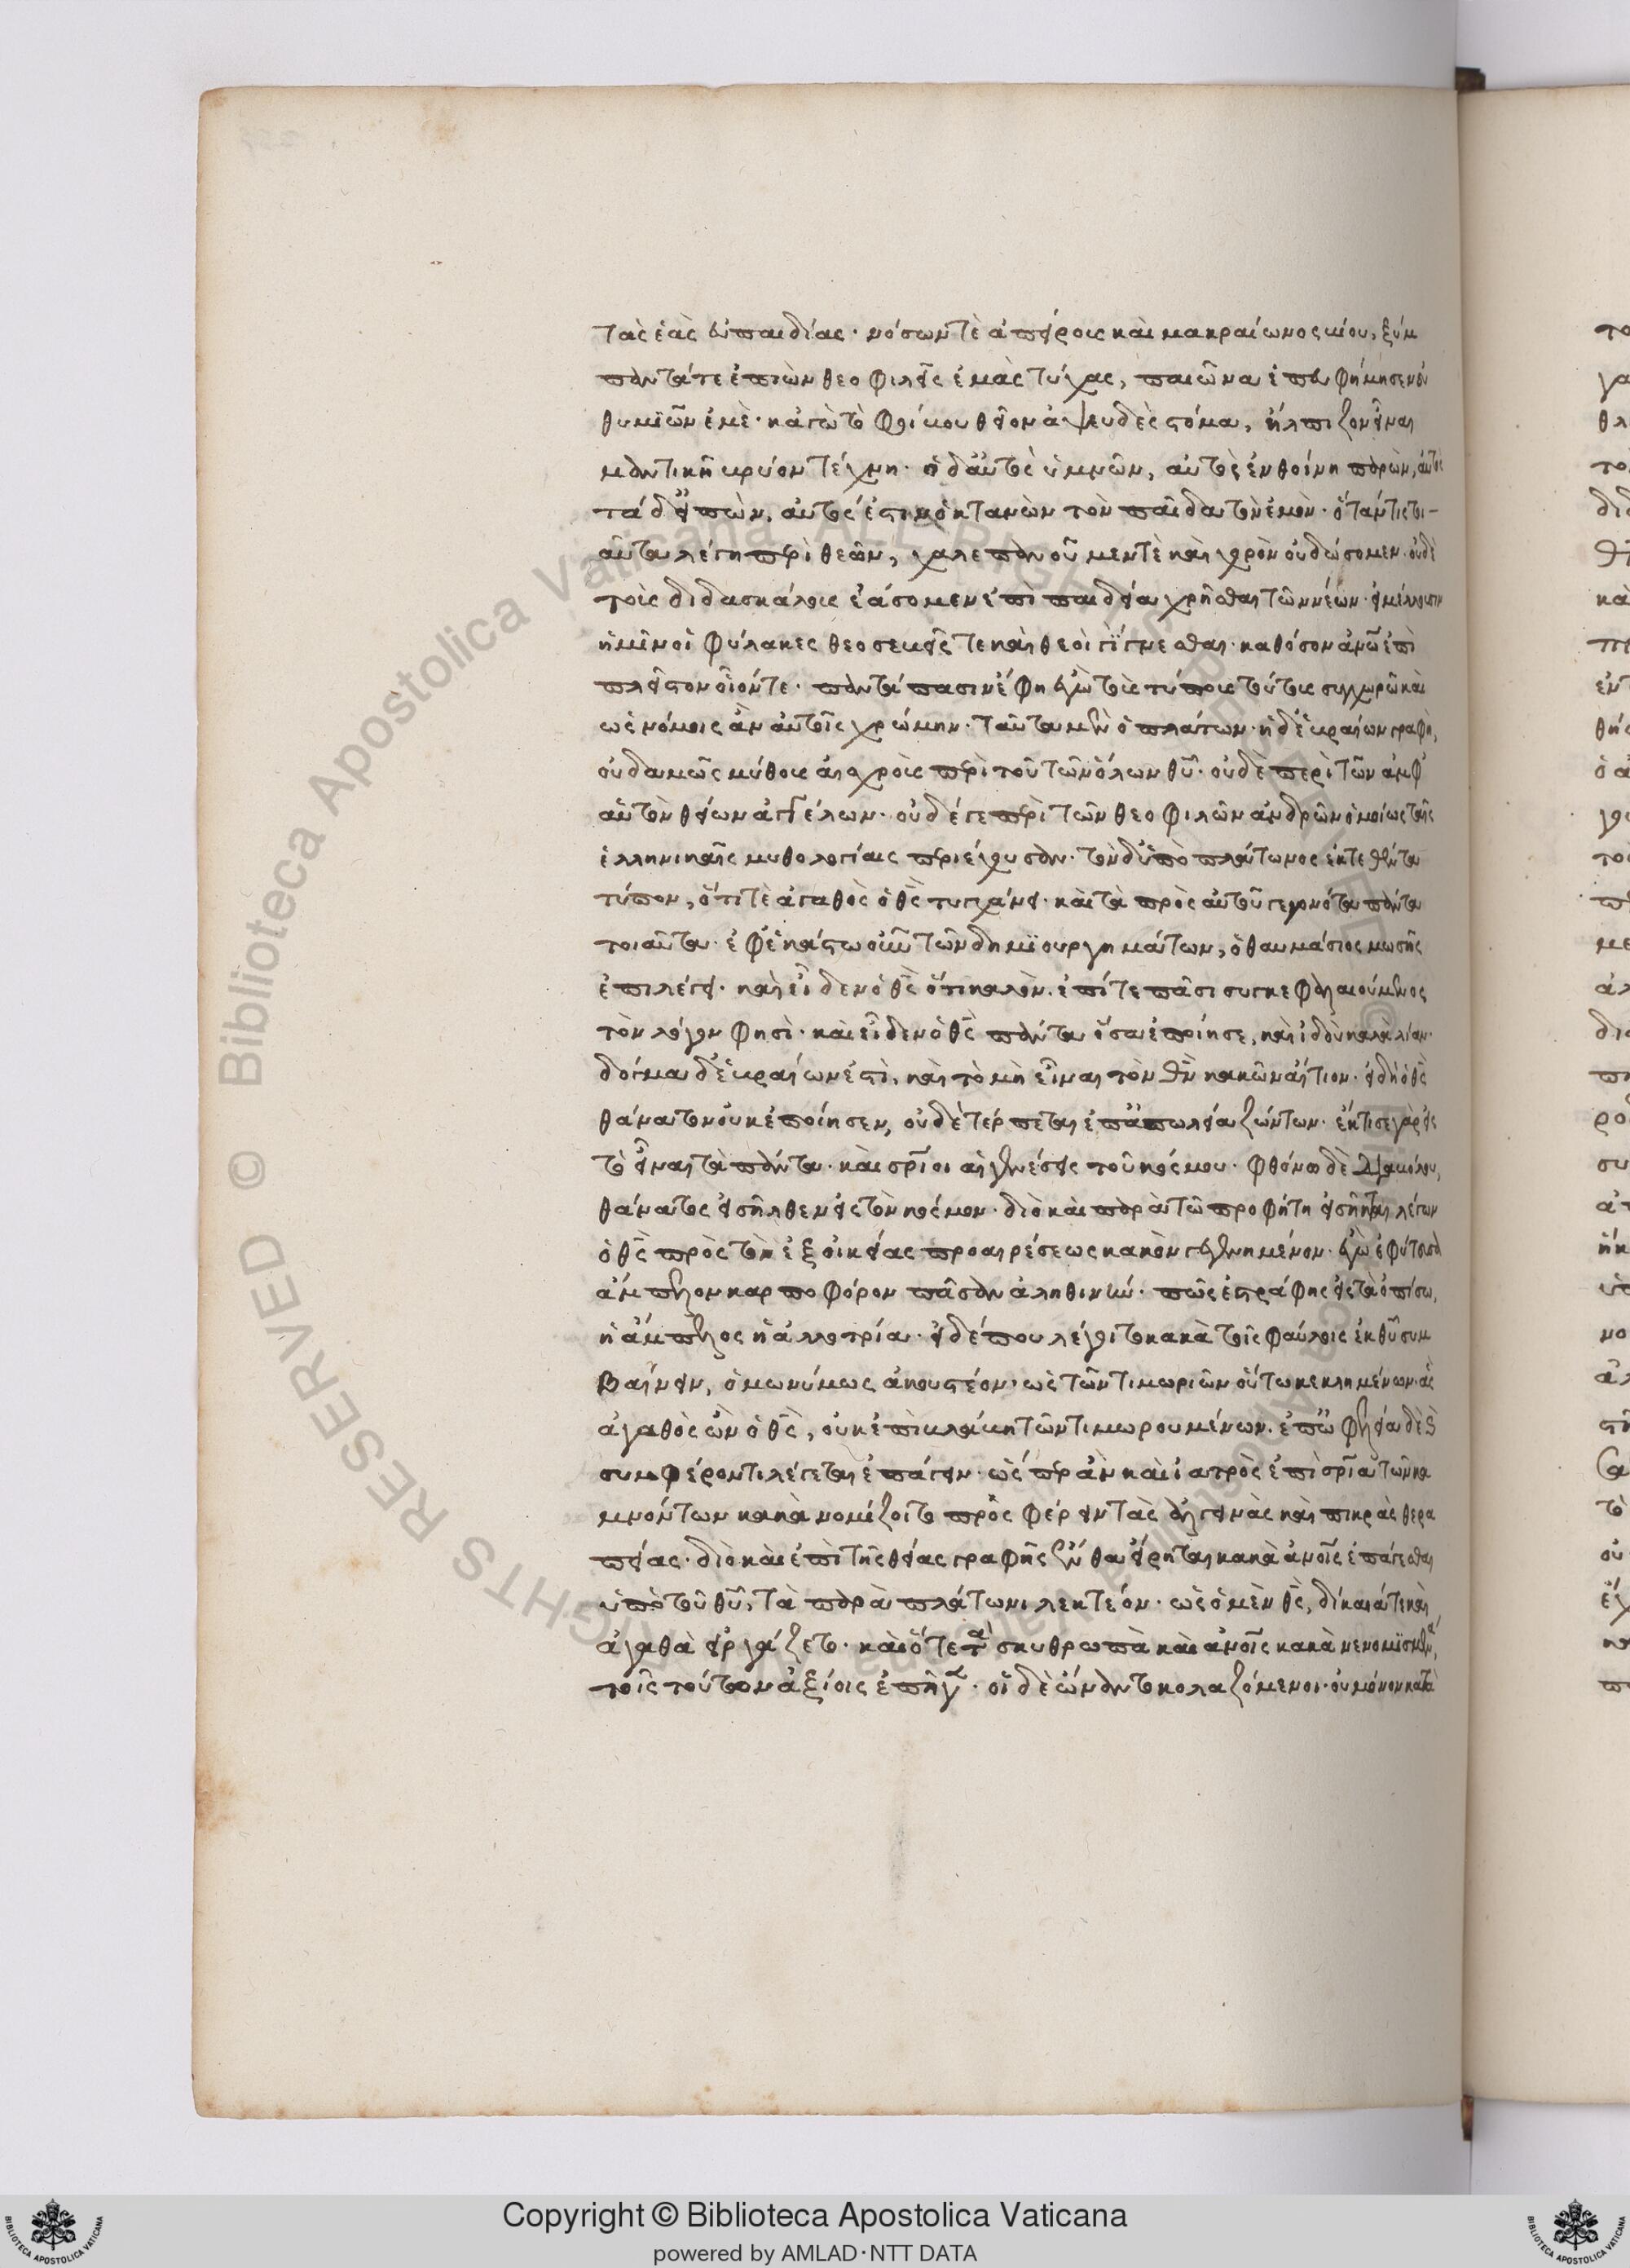 τὰς ἑὰς εὐπαιδίας· νόσων τὲ ἀπείροις καὶ μακραίωνος βίου, ξύμ
παντά τε ἐπιὼν θεοφιλεῖς ἐμὰς τύχας, παιῶνα ἐπευφήμησεν εὐ
θυμιῶν ἐμὲ· κἀγὼ τὸ φοίβου θεῖον ἀψευδὲς στόμα, ἤλπιζον εἶναι
μαντικῆ βρύον τέχνη· ὁ δ' αὐτὸς ὑμνῶν, αὐτὸς ἐν θοίνη παρὼν, αὐτὸς
τάδ' εἰπὼν, αὐτός ἐστιν ὁ κτανὼν τὸν παῖδα τὸν ἐμὸν· ὅταν τίς τοι-
αῦτα λέγη περὶ θεῶν, χαλεπανοῦμέν τὲ καὶ χορὸν οὐ δώσομεν· οὐδὲ
τοῖς διδασκάλοις ἐάσομεν ἐπὶ παιδεία χρῆσθαι τῶν νέων· εἰ μέλλουσιν
ἡμῖν οἱ φύλακες θεοσεβεῖς τε καὶ θεοὶ γίγνεσθαι· καθόσον ἀνω ἐπὶ
πλεῖστον οἷόν τε· παντάπασιν ἔφη ἐγὼ τοὺς τύπους τούτους συγχωρῶ καὶ
ὡς νόμοις ἂν αὐτοῖς χρώμην· ταῦτα μὲν ὁ πλάτων· ἡ δὲ ἑβραίων γραφὴ,
οὐδαμῶς μύθους αἰσχροὺς περὶ τοῦ τῶν ὅλων θυ· οὐδὲ περὶ τῶν ἀμφ'
αὐτὸν θείων ἀγγέλων· οὐδέ γε περὶ τῶν θεοφιλῶν ἀνδρῶν ὁμοίως ταῖς
ἑλληνικαῖς μυθολογίαις περιέχουσαν· τὸν δ' ὑπὸ πλάτωνος ἐκτεθέντα
τύπον, ὅτι τὲ ἀγαθὸς ὁ θς τυγχάνει· καὶ τὰ πρὸς αὐτοῦ γεγονότα πάντα
τοιαῦτα· ἐφ' ἑκάστω οὖν τῶν δημιουργημάτων, ὁ θαυμάσιος μωσῆς
ἐπιλέγει· καὶ εἶδεν ὁ θς ὅτι καλὸν· ἐπί τε πᾶσι συγκεφαλαιούμενος
τὸν λόγον φησὶ· καὶ εἶδεν ὁ θς πάντα ὅσα ἐποίησε, καὶ ἰδοὺ καλὰ λίαν·
δόγμα δὲ ἑβραίων ἐστὶ, καὶ τὸ μὴ εἶναι τὸν θν κακῶν αἴτιον· εἰ δὴ ὁ θς
θάνατον οὐκ ἐποίησεν, οὐδὲ τέρπεται ἐπ' ἀπωλεία ζώντων· ἔκτισε γὰρ εἰς
τὸ εἶναι τὰ πάντα· καὶ σρίοι αἱ γενέσεις τοῦ κόσμου· φθόνω δὲ διαβόλου,
θάνατος εἰσῆλθεν εἰς τὸν κόσμον· διὸ καὶ παρὰ τῶ προφήτη εἰσῆκται λέγων
ὁ θς πρὸς τὸν ἐξ οἰκείας προαιρέσεως κακὸν γεγενημένον· ἐγὼ ἐφύτευσά
ἄμπελον καρποφόρον πᾶσαν ἀληθινήν· πῶς ἐστράφης εἰς τὰ ὀπίσω,
ἡ ἄμπελος ἡ ἀλλοτρία· εἰ δέ που λέγοιτο κακὰ τοῖς φαύλοις ἐκ θυ συμ
βαίνειν, ὁμωνύμως ἀκουστέον· ὡς τῶν τιμωριῶν οὕτω κεκλημένων· ἃς
ἀγαθὸς ὢν ὁ θς, οὐκ ἐπὶ βλάβη τῶν τιμωρουμένων· ἐπ' ὠφελεία δὲ καὶ
συμφέροντι λέγεται ἐπάγειν· ὥσπερ ἂν καὶ ἰατρὸς ἐπὶ σρία τῶν κα
μνόντων κακὰ νομίζοιτο προσφέρειν τὰς ἀλγεινὰς καὶ πικρὰς θερα
πείας· διὸ καὶ ἐπὶ τῆς θείας γραφῆς ἔνθα εἴρηται κακὰ ἀνοις ἐπάγεσθαι
ὑπὸ τοῦ θυ, τὰ παρὰ πλάτωνι λεκτέον· ὡς ὁ μὲν θς, δίκαιά τε καὶ
ἀγαθὰ εἰργάζετο· καὶ ὅτε τὰ σκυθρωπὰ καὶ ἀνοις κακὰ νενομισμένα,
τοῖς τούτων ἀξίοις ἐπῆγεν· οἱ δὲ ὤναντο κολαζόμενοι· οὐ μόνον κατὰ